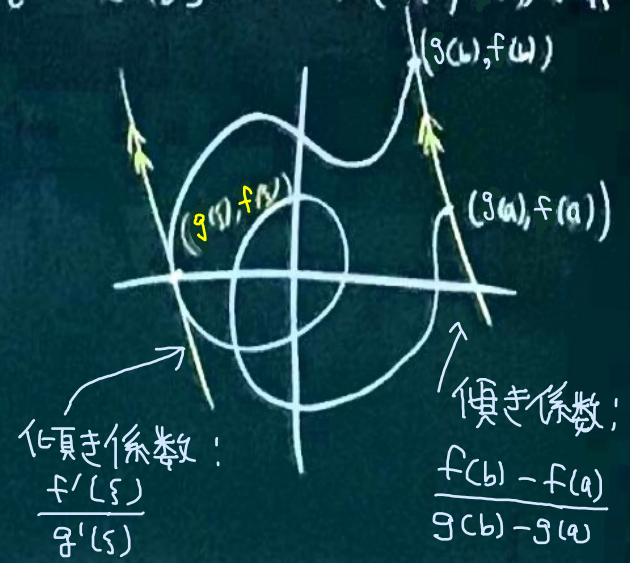 (g(b), f(b))
(g(ξ), f(ξ))
(g(a), f(a))
傾き係数:
f'(ξ)
g'(ξ)
傾き係数:
f(b) - f(a)
g(b) - g(a)